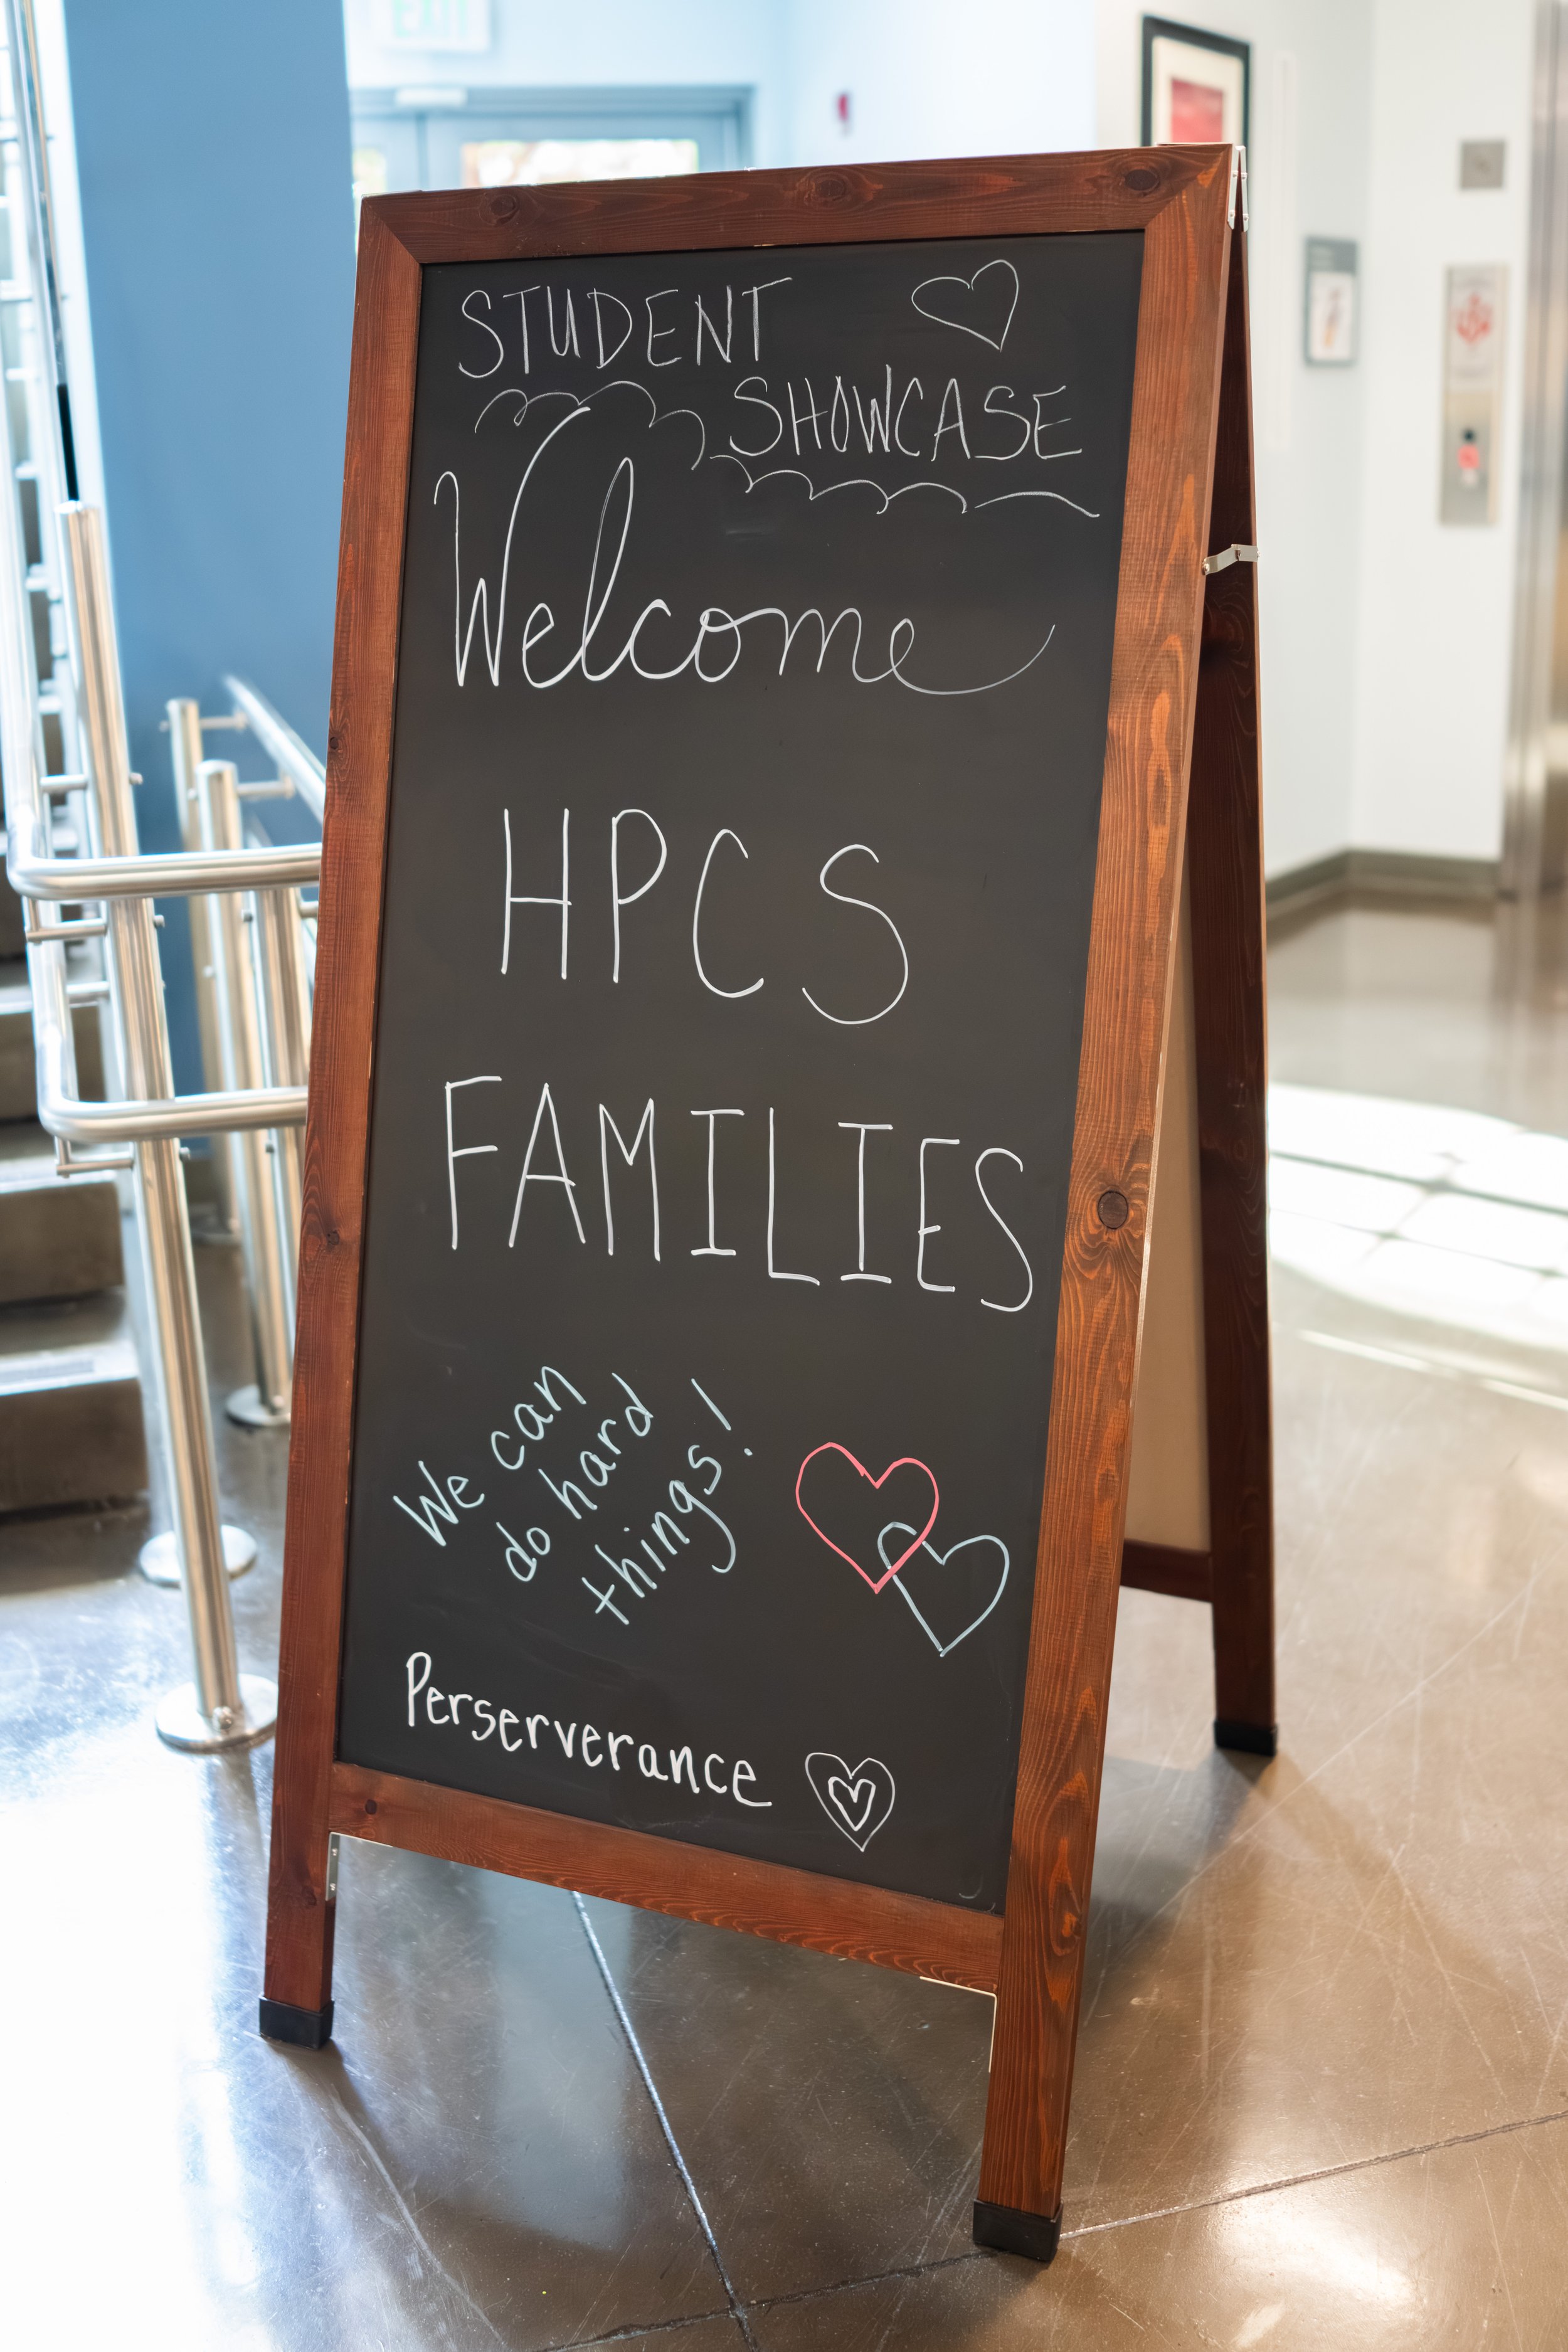 EXIT
STUDENT
SHOWCASE
Welcome
HPCS
FAMILIES
We can
do hard
things!
Perserverance